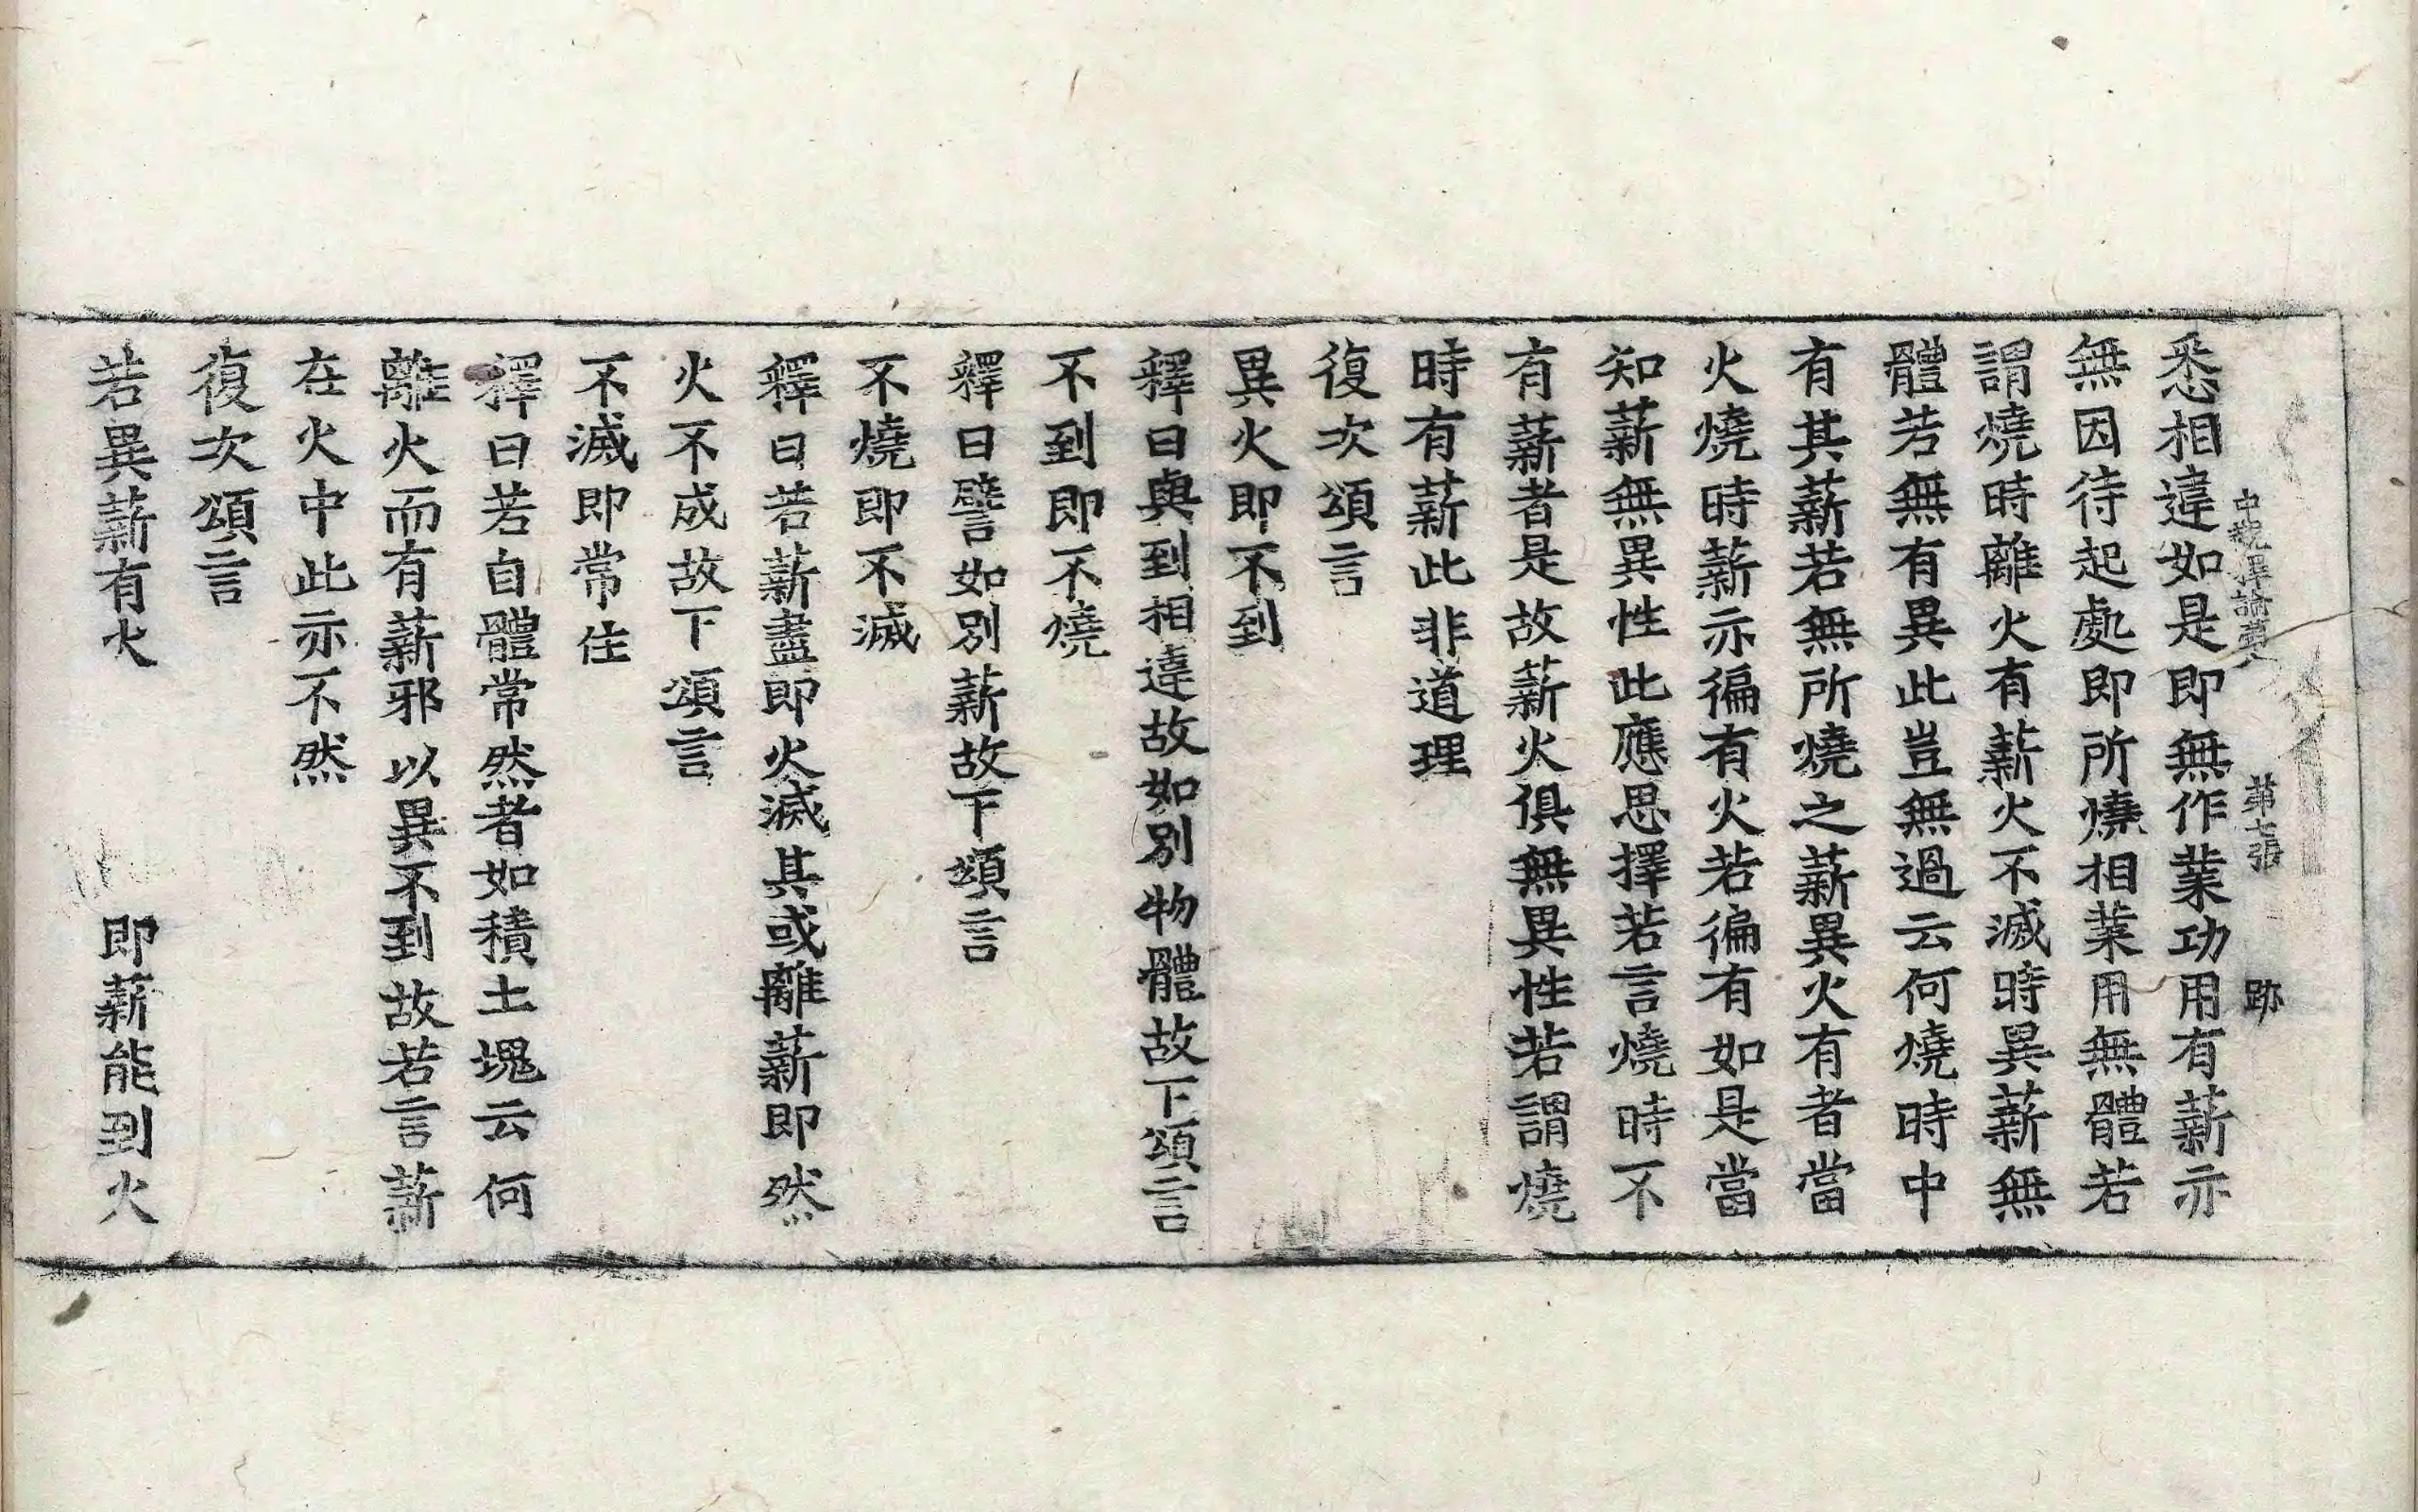 中觀釋論第八　第七張　跡
悉相違如是即無作業功用有薪亦
無因待起處即所燒相業用無體若
謂燒時離火有薪火不滅時異薪無
體若無有異此豈無過云何燒時中
有其薪若無所燒之薪異火有者當
火燒時薪亦徧有火若徧有如是當
知薪無異性此應思擇若言燒時不
有薪者是故薪火俱無異性若謂燒
時有薪此非道理
復次頌言
異火即不到
釋曰與到相違故如別物體故下頌言
不到即不燒
釋曰譬如別薪故下頌言
不燒即不滅
釋曰若薪盡即火滅其或離薪即然
火不成故下頌言
不滅即常住
釋曰若自體常然者如積土塊云何
離火而有薪邪以異不到故若言薪
在火中此亦不然
復次頌言
若異薪有火　即薪能到火